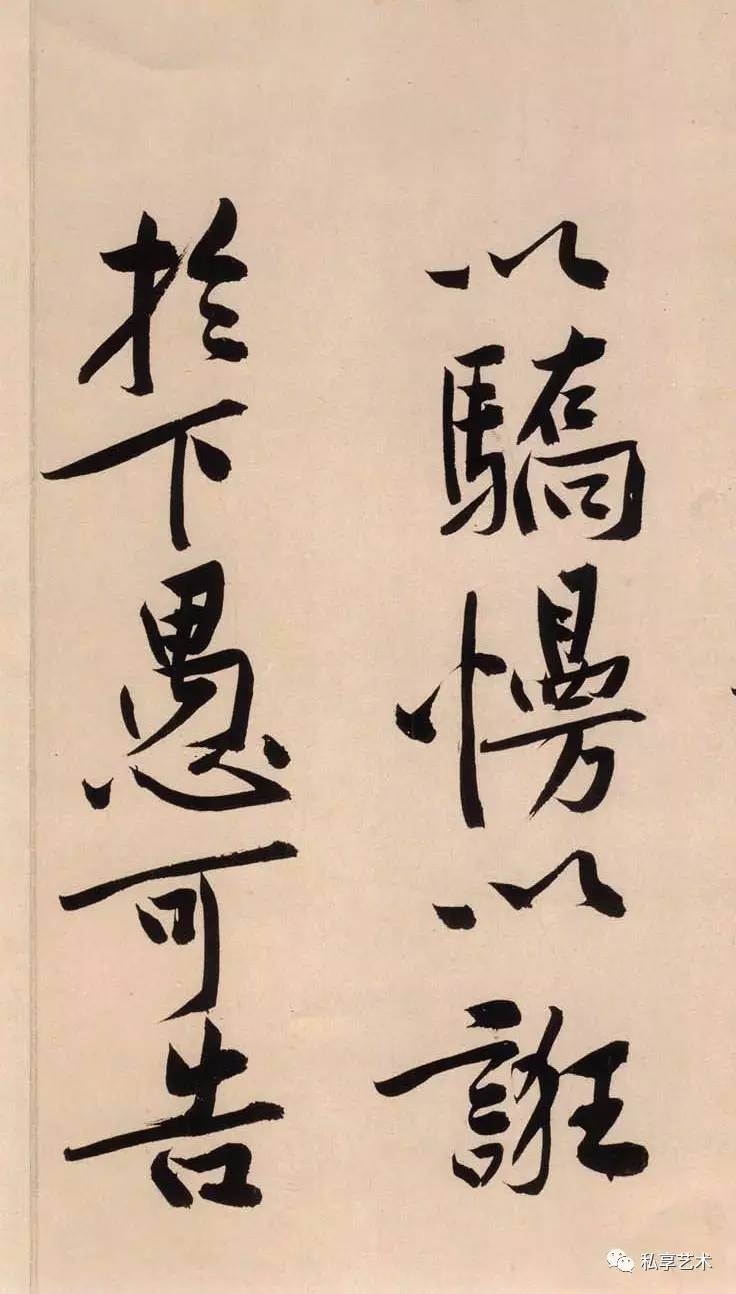 以驕慢以誑
於下愚可告
私享艺术